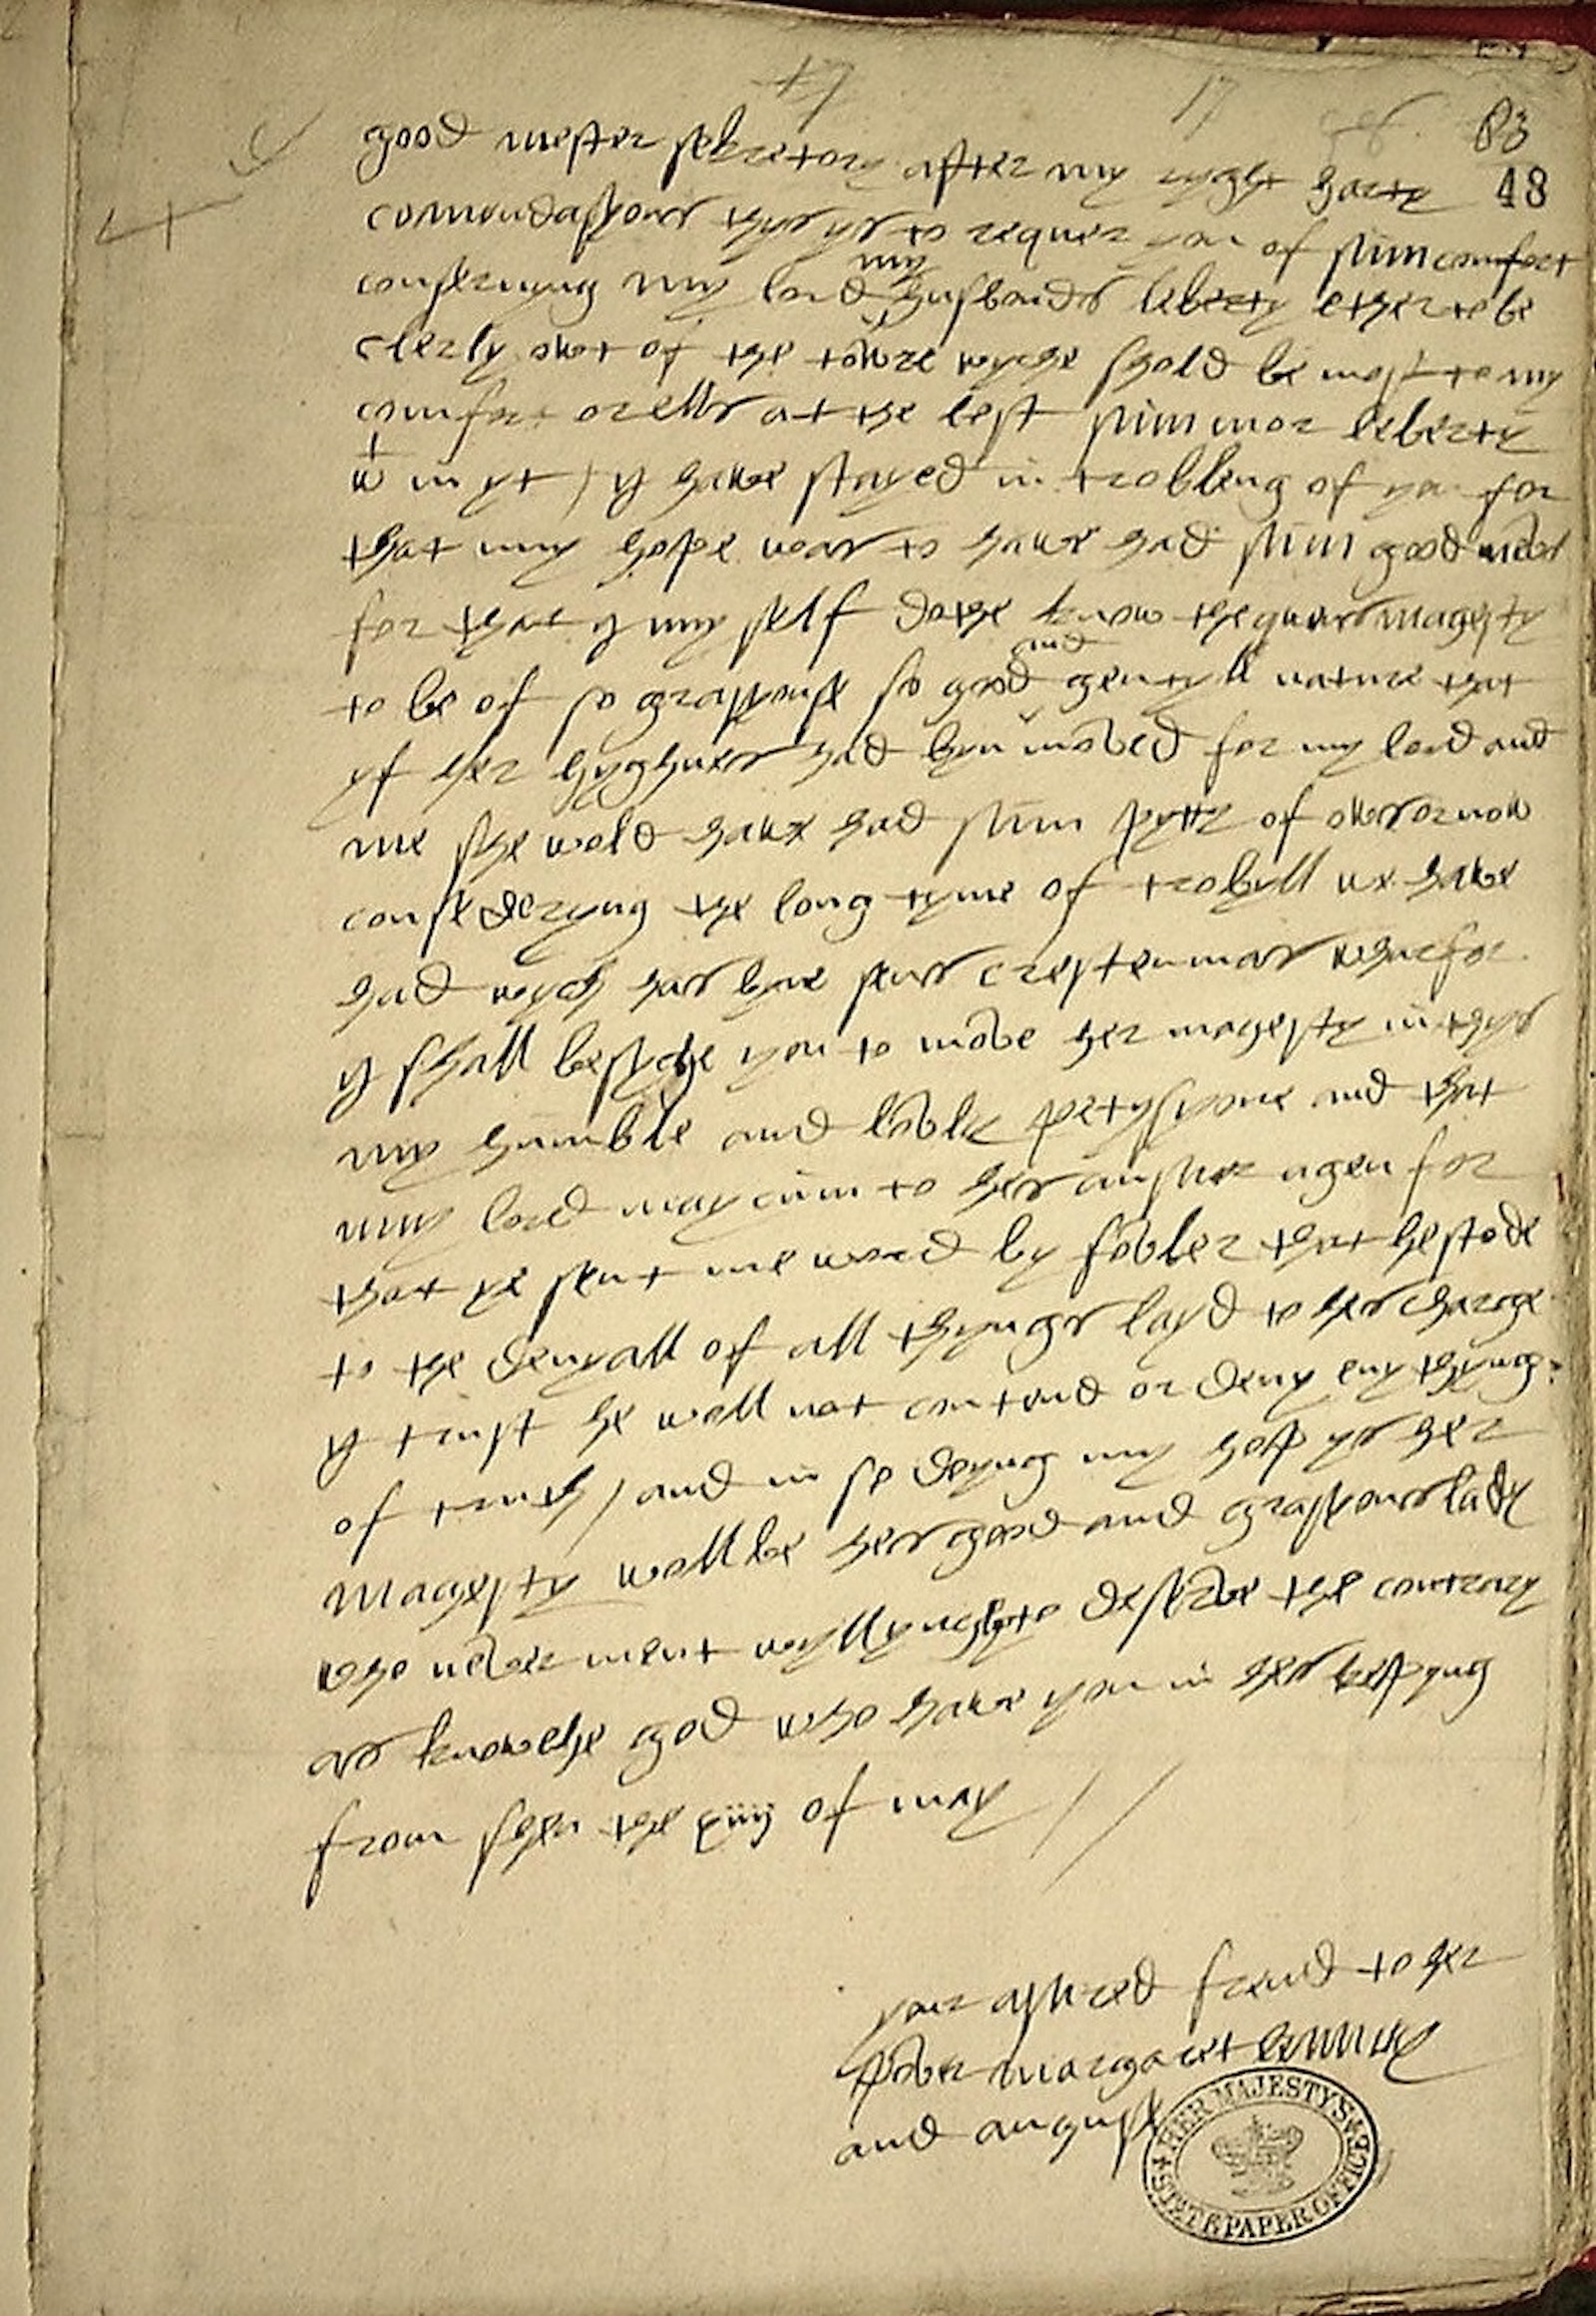 17 17
83
48
good mester sekretory after my ryght harty
comendasyons thys ys to requier you of sum comfort
consernyng my lord my husbands leberty ether to be
clerly owt of the towre wyche shold be most to my
comfort or ells at the lest sum mor leberty
wt in yt / y hawe stayed in trobleng of you for
that my hope was to hawe had sum good
for that y my self dothe know the quens magesty
to be of so grasyouse so good and gentyll nature that
yf her hyghnes had byn moved for my lord and
me she wold hawe had sum pytte of ows or now
consederyng the long tyme of trobyll we hawe
had wych has byne sens crestenmas wharfor
y shall besyche you to move her magesty in thys
my humble and petysyone and that
my lord may cum to hes answer agen for
that ye sent me word by fovler that he stode
to the denyall of all thyngs layd to hes charge
y trust he woll not contend or deny eny thyng
of truth / and in so doyng my hop ys her
magesty woll be hes good and grasyous lady
who never ment wyllynghly to deserve the contrary
as knowethe god who hawe you in hes kepyng
from shen the xiiij of may //
your assured frend to her
pover margaret lennox
and anguse
HER MAJESTYS STATE PAPER OFFICE